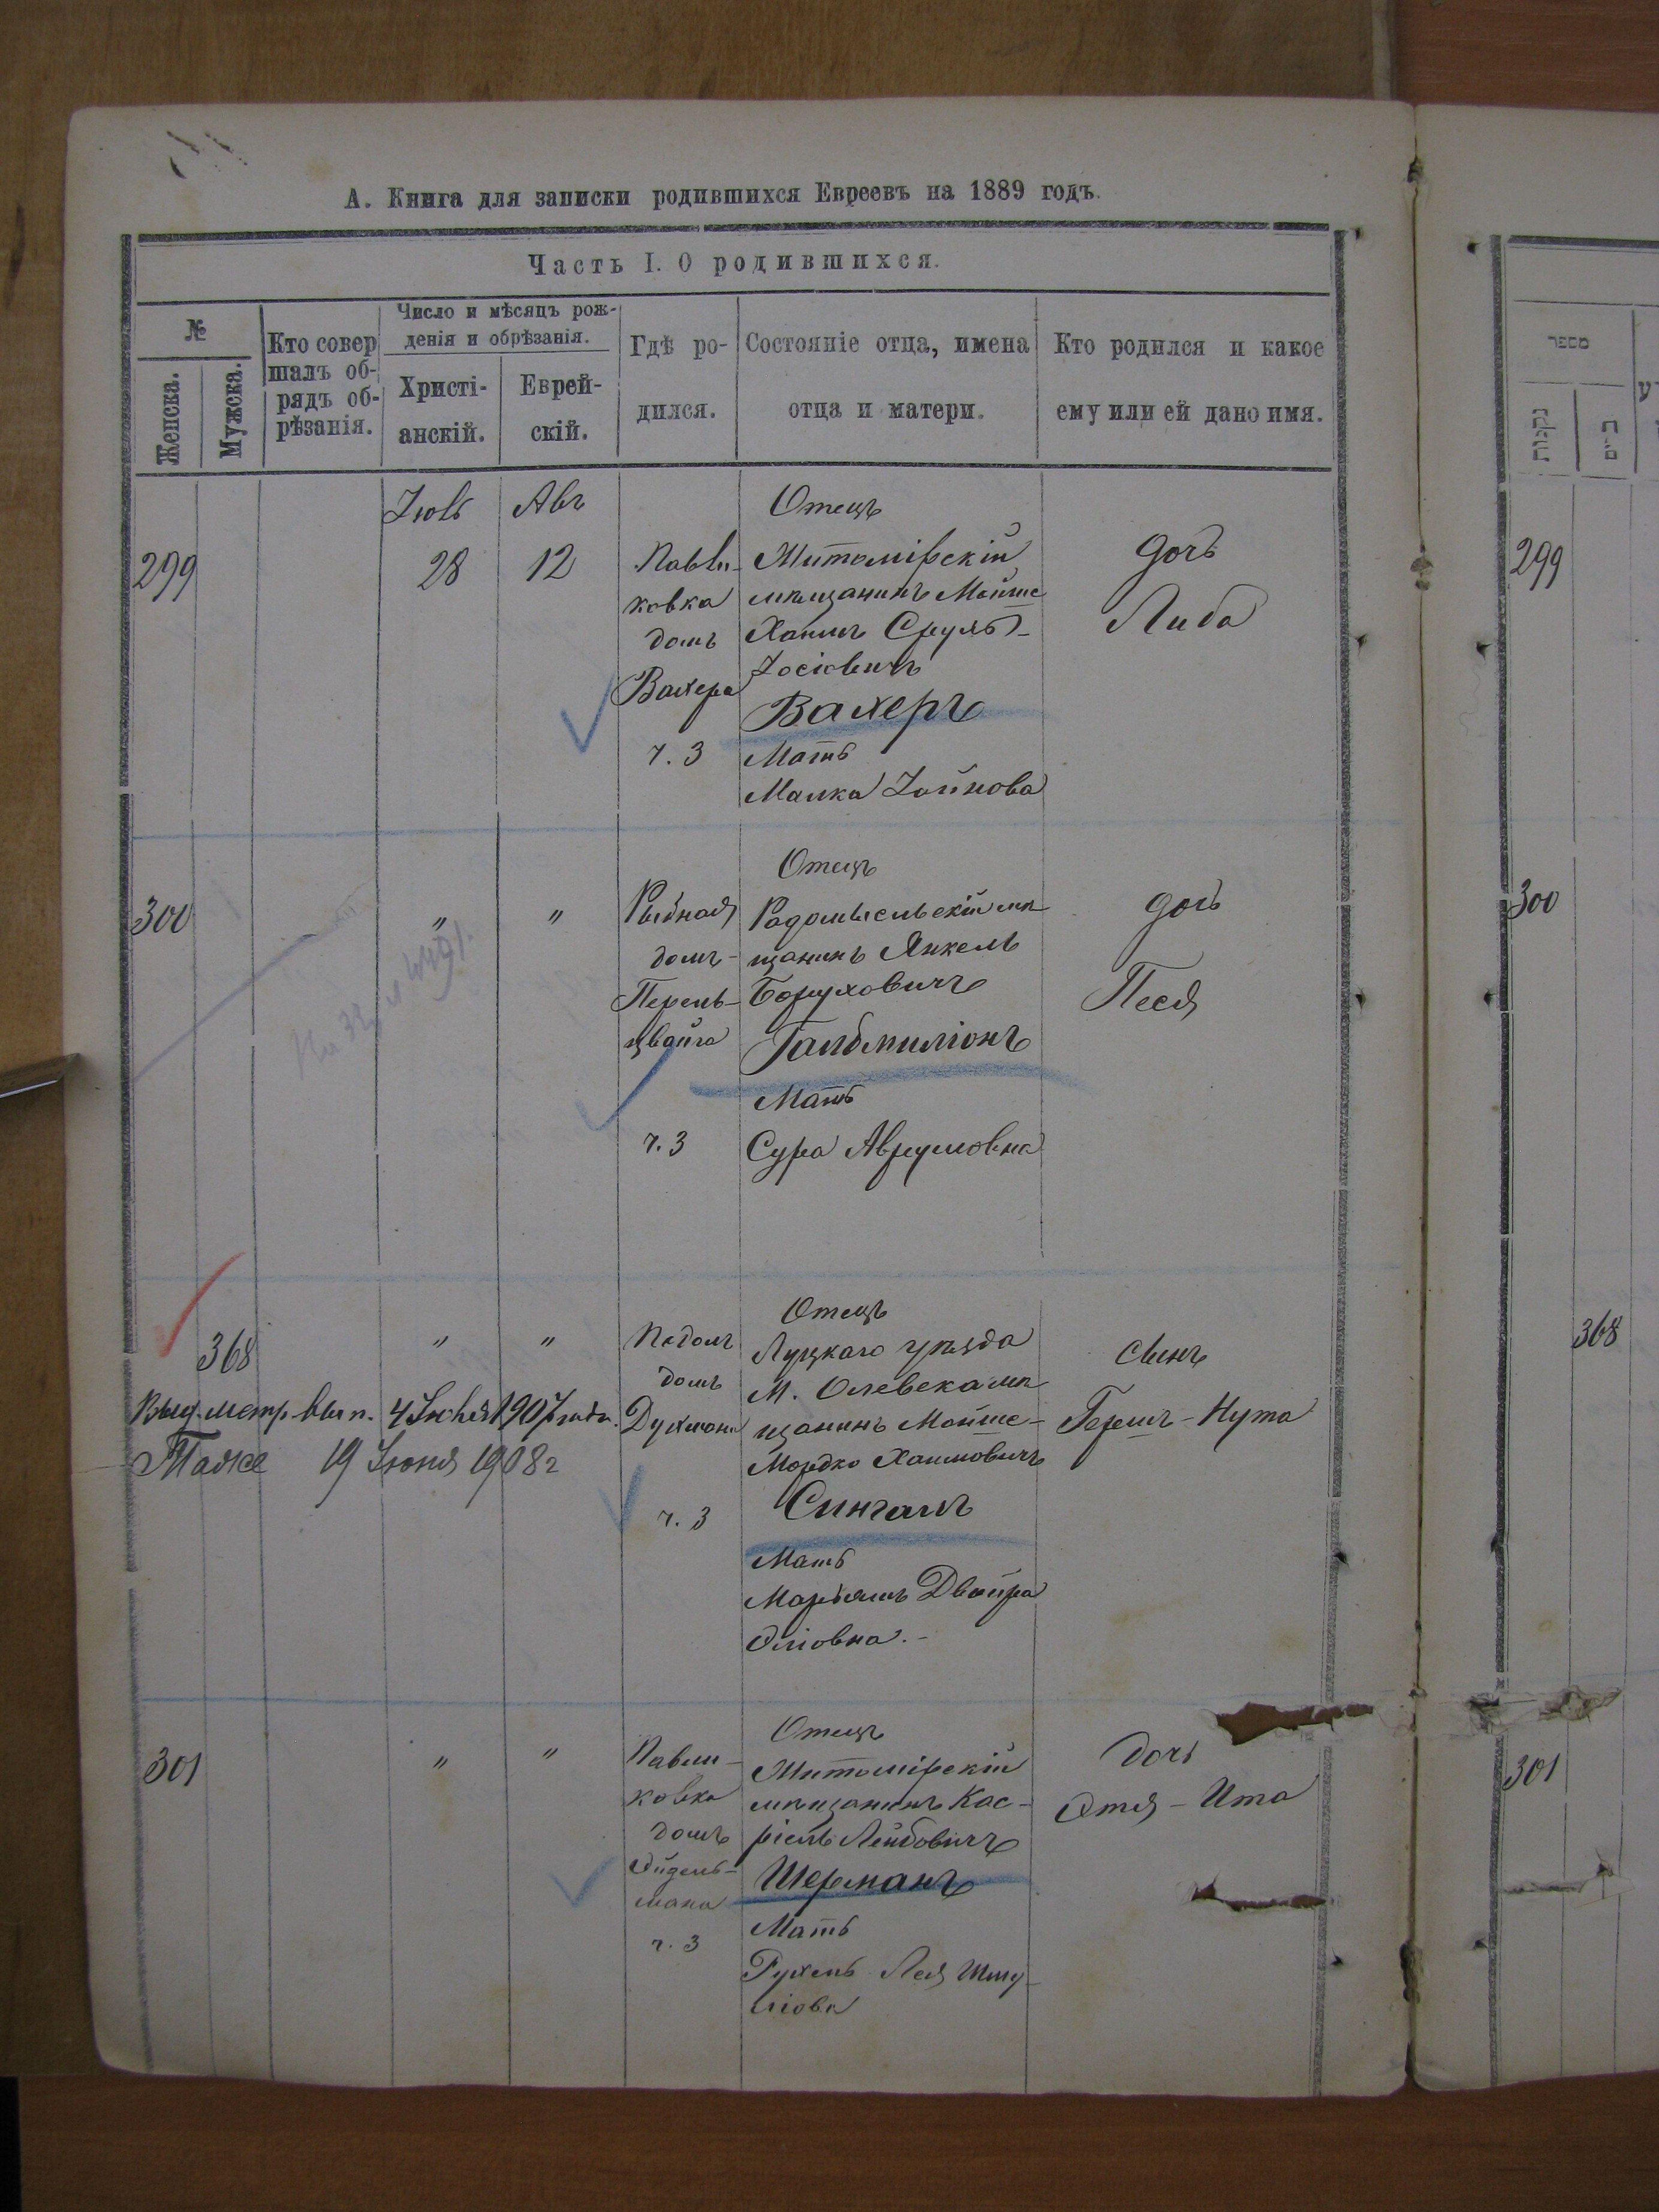 А. Книга для записки родившихся Евреевъ на 1889 годъ.
Часть I. О родившихся.
№
Женска.
Мужска.
Кто совер
шалъ об-
рядъ об-
рѣзанія.
Число и мѣсяцъ рож-
денія и обрѣзанія.
Христі-
анскій.
Еврей-
скій.
Гдѣ ро-
дился.
Состояніе отца, имена
отца и матери.
Кто родился и какое
ему или ей дано имя.
299
Іюль
28
Авъ
12
Павли-
ковка
домъ
Вахера
ч. 3
Отецъ
Житомірскій
мѣщанинъ Мойше
Хаимъ Сруль-
Іосіовичъ
Вахеръ
Мать
Малка Іойнова
дочь
Либа
300
"
"
Рыбная
домъ
Перель-
цвайга
ч. 3
Отецъ
Радомысльскій мѣ-
щанинъ Янкель
Боруховичъ
Гальбмиліонъ
Мать
Сура Аврумовна
дочь
Песя
368
"
"
Выд. метр. вып. 4 1907 года.
Также 19 Іюня 1908 г
Подолъ
домъ
ч. 3
Отецъ
Луцкаго уѣзда
М. Олевска мѣ-
щанинъ Мойше-
Мордко Хаимовичъ
Сингалъ
Мать
Марьямъ Двойра
Эліовна.-
сынъ
Гершъ-Нута
301
"
"
Павли-
ковка
домъ
Эйдель-
мана
ч. 3
Отецъ
Житомірскій
мѣщанинъ Кас-
ріель Лейбовичъ
Шерманъ
Мать
Рухель Лея Шму-
ліова
дочь
Этя-Ита
מספר
נקבות
299
300
368
301